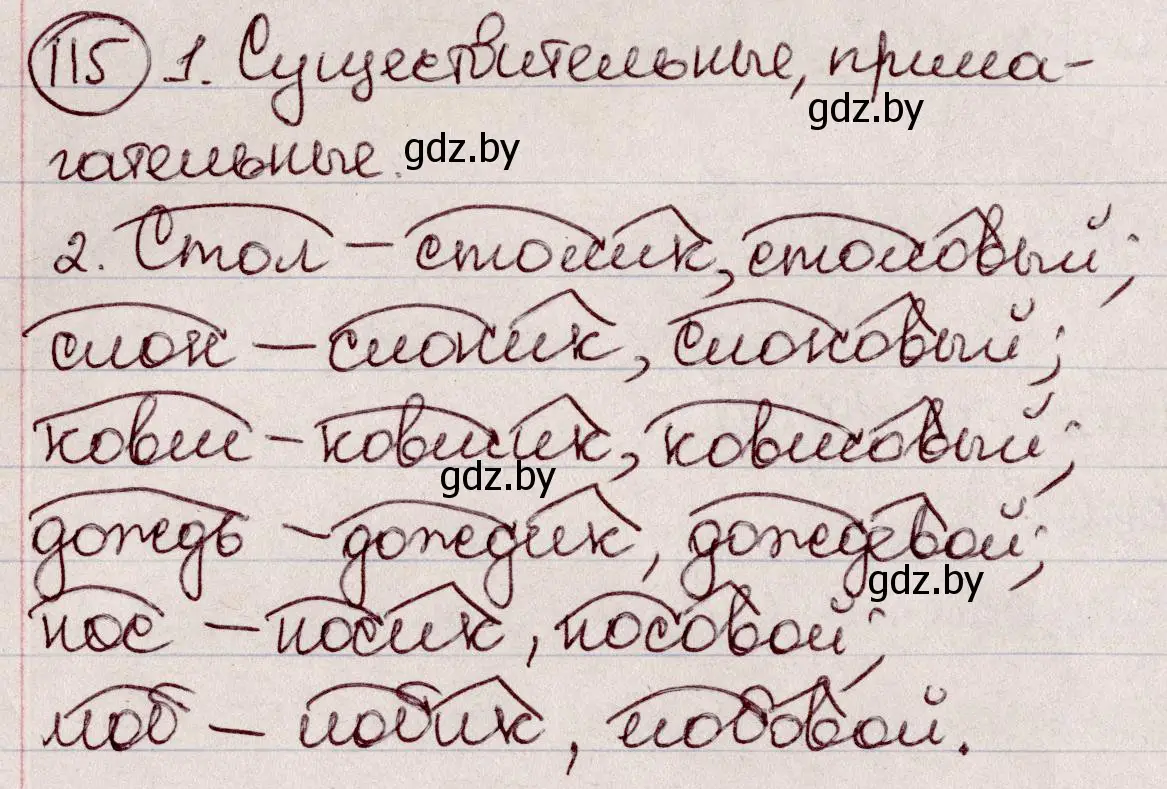 115 1. Существительные, прила-
gdz.by
гательные. gdz.by
2. Стол – столик, столовый;
слон – слоник, слоновый;
ковш – ковшик, ковшовый;
gdz.by
дождь – дождик, дождевой;
gdz.by
нос – носик, носовой;
лоб – лобик, лобовой.